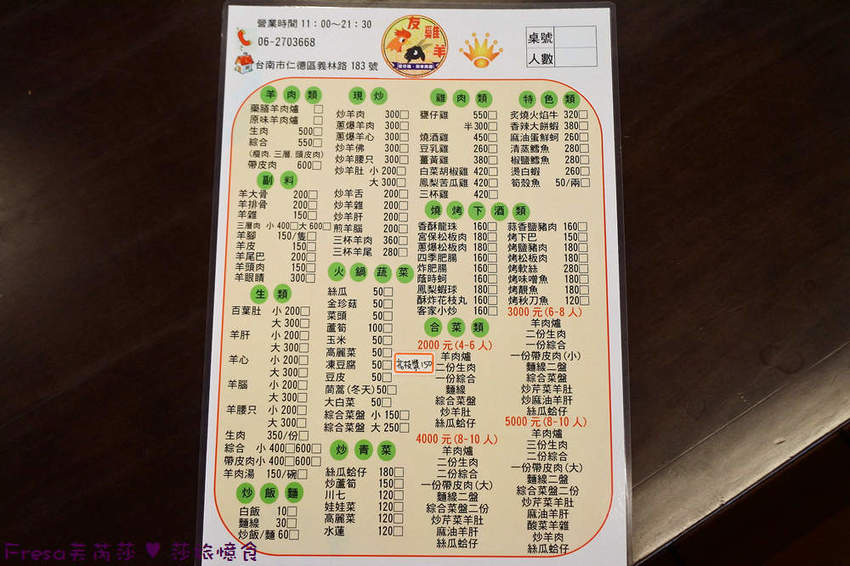 營業時間 11：00～21：30
06-2703668
台南市仁德區義林路 183 號
友雞羊
桌號
人數
羊肉類
藥膳羊肉爐
原味羊肉爐
生肉 500
綜合 550
(瘦肉.三層.頭皮肉)
帶皮肉 600
副料
羊大骨 200
羊排骨 200
羊雜 150
三層肉 小 400 大 600
羊腳 150/隻
羊皮 150
羊尾巴 200
羊頭肉 150
羊眼睛 150
生類
百葉肚 小 200
大 300
羊肝 小 200
大 300
羊心 小 200
大 300
羊腦 小 200
大 300
羊腰只 小 200
大 300
生肉 350/份
綜合 小 400 600
帶皮肉小 400 600
羊肉湯 150/碗
炒飯麵
白飯 10
麵線 30
炒飯/麵 60
現炒
炒羊肉 300
蔥爆羊肉 300
蔥爆羊心 300
炒羊佛 300
炒羊腰只 300
炒羊肚 小 200
大 300
炒羊舌 200
炒羊雜 200
炒羊肝 200
煎羊腦 200
三杯羊肉 360
三杯羊尾 280
火鍋蔬菜
絲瓜 50
金珍菇 50
菜頭 50
蘆筍 100
玉米 50
高麗菜 50
凍豆腐 50
豆皮 50
茼蒿(冬天) 50
大白菜 50
綜合菜盤 小 150
綜合菜盤 大 250
炒青菜
絲瓜蛤仔 180
炒蘆筍 150
川七 120
娃娃菜 120
高麗菜 120
水蓮 120
雞肉類
甕仔雞 550
半 300
燒酒雞 450
豆乳雞 260
薑黃雞 380
白菜胡椒雞 420
鳳梨苦瓜雞 420
三杯雞 420
特色類
炙燒火焰牛 320
香辣大餅蝦 380
麻油蛋鮮蚵 260
清蒸鱈魚 280
椒鹽鱈魚 280
燙白蝦 260
筍殼魚 50/兩
燒烤下酒類
香酥龍珠 160
宮保松板肉 180
蔥爆松板肉 180
四季肥腸 160
炸肥腸 160
蔭時蚵 160
鳳梨蝦球 180
酥炸花枝丸 160
客家小炒 160
蒜香鹽豬肉 160
烤下巴 150
烤鹽豬肉 180
烤松板肉 180
烤軟絲 280
烤味噌魚 180
烤靚魚 180
烤秋刀魚 120
合菜類
2000 元(4-6 人)
羊肉爐
二份生肉
一份綜合
麵線
綜合菜盤
炒羊肚
絲瓜蛤仔
4000 元(8-10 人)
羊肉爐
二份生肉
二份綜合
一份帶皮肉(大)
麵線二盤
綜合菜盤二份
炒芹菜羊肚
麻油羊肝
絲瓜蛤仔
3000 元(6-8 人)
羊肉爐
二份生肉
一份綜合
一份帶皮肉(小)
麵線二盤
綜合菜盤
炒芹菜羊肚
炒麻油羊肝
絲瓜蛤仔
5000 元(8-10 人)
羊肉爐
三份生肉
二份綜合
一份帶皮肉(大)
麵線二盤
綜合菜盤二份
炒芹菜羊肚
麻油羊肝
酸菜羊雜
炒羊肉
絲瓜蛤仔
荔枝醬 150
Fresa芙芮莎 ♥ 莎旅憶食